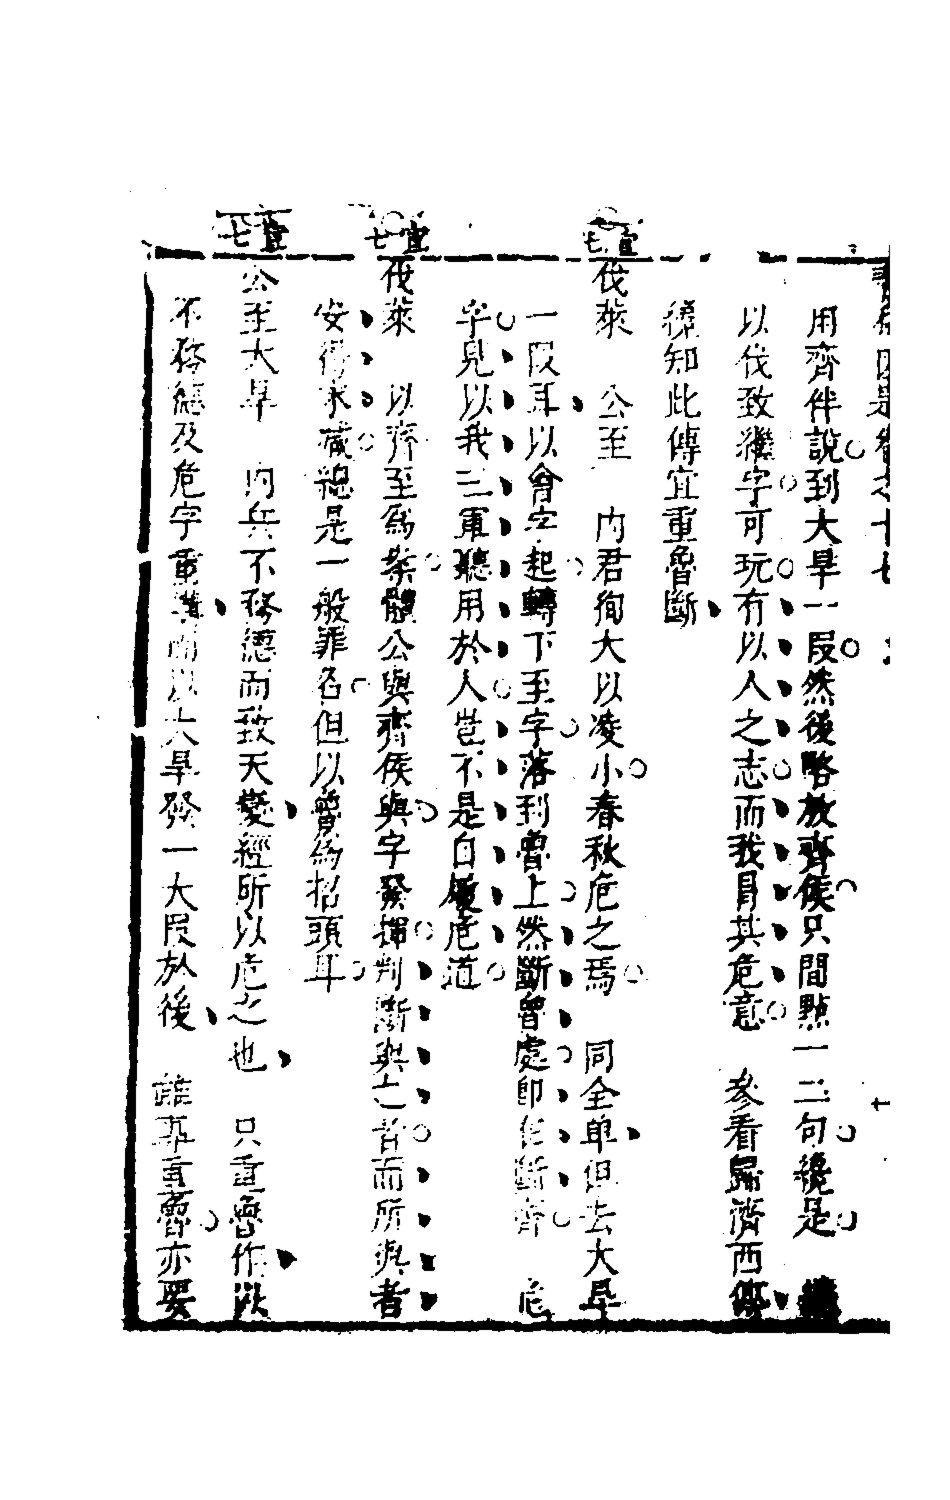 用齊伴說到大旱一段然後略放齊侯只間點一二句纔是
以伐致繼字可玩有以人之志而我冒其危意 參看歸濟西傳
纔知此傳宜重魯斷
宣七
伐萊 公至 內君徇大以凌小春秋危之焉 同全单但去大旱
一段耳以會字起轉下至字落到魯上然斷魯處即是斷齊 危
字見以我三軍聽用於人豈不是自履危道
宣七
伐萊 以齊至為案體公與齊侯與字發揮判斷與之者而所與者
安得末減總是一般罪名但以魯為招頭耳
宣七
公至大旱 內兵不務德而致天變經所以危之也 只重魯作以
不務德及危字重講而以大旱發一大段於後 雖專重魯亦要